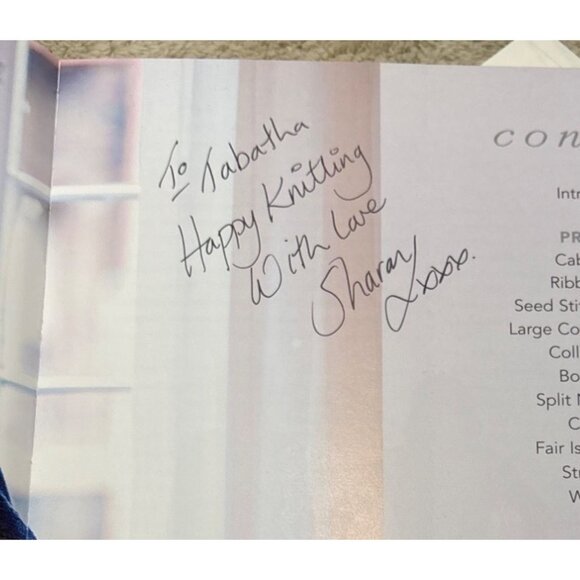 To Tabatha
Happy Knitting
With Love
Sharan
xxxx.
con
Intr
PR
Cab
Ribb
Seed Stit
Large Co
Coll
Bo
Split N
C
Fair Is
Str
W